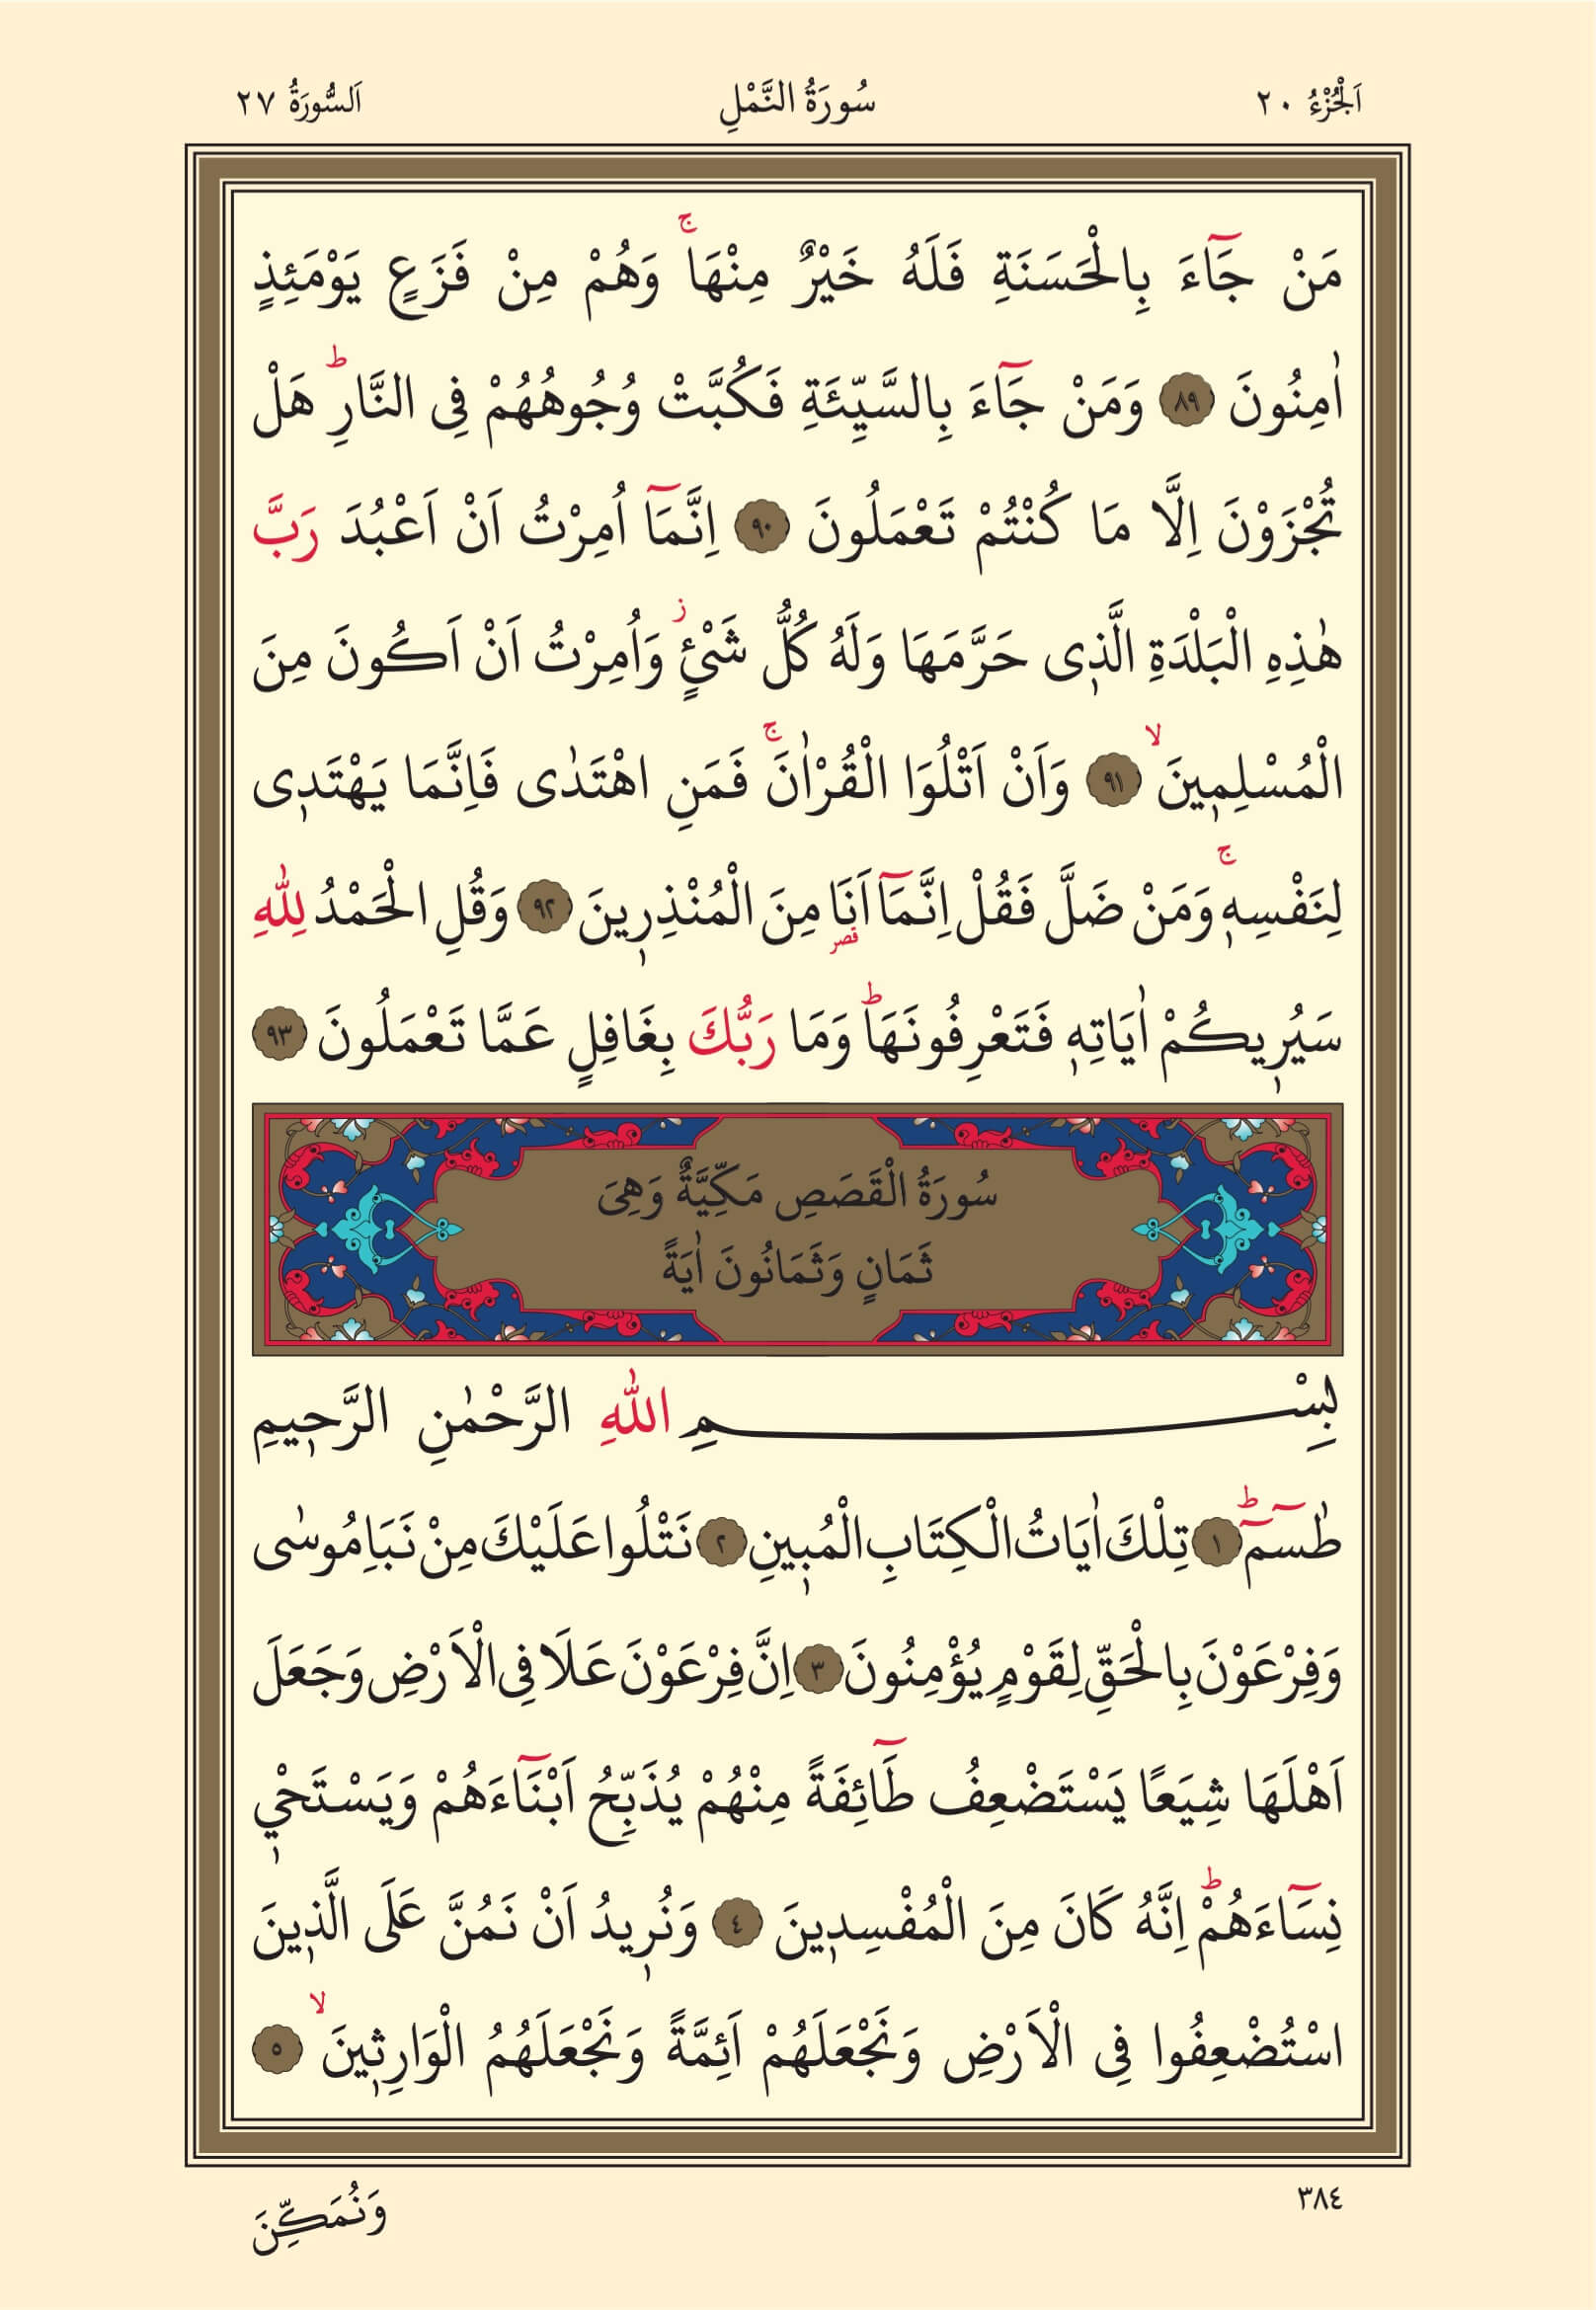 اَلْجُزْءُ ٢٠ سُورَةُ النَّمْلِ اَلسُّورَةُ ٢٧
مَنْ جَٓاءَ بِالْحَسَنَةِ فَلَهُ خَيْرٌ مِنْهَاۚ وَهُمْ مِنْ فَزَعٍ يَوْمَئِذٍ
اٰمِنُونَ ﴿٨٩﴾ وَمَنْ جَٓاءَ بِالسَّيِّئَةِ فَكُبَّتْ وُجُوهُهُمْ فِى النَّارِۜ هَلْ
تُجْزَوْنَ اِلَّا مَا كُنْتُمْ تَعْمَلُونَ ﴿٩٠﴾ اِنَّمَٓا اُمِرْتُ اَنْ اَعْبُدَ رَبَّ
هٰذِهِ الْبَلْدَةِ الَّذ۪ى حَرَّمَهَا وَلَهُ كُلُّ شَىْءٍۘ وَاُمِرْتُ اَنْ اَكُونَ مِنَ
الْمُسْلِم۪ينَۙ ﴿٩١﴾ وَاَنْ اَتْلُوَا الْقُرْاٰنَۚ فَمَنِ اهْتَدٰى فَاِنَّمَا يَهْتَد۪ى
لِنَفْسِه۪ۚ وَمَنْ ضَلَّ فَقُلْ اِنَّمَٓا اَنَا۬ مِنَ الْمُنْذِر۪ينَ ﴿٩٢﴾ وَقُلِ الْحَمْدُ لِلّٰهِ
سَيُر۪يكُمْ اٰيَاتِه۪ فَتَعْرِفُونَهَاۜ وَمَا رَبُّكَ بِغَافِلٍ عَمَّا تَعْمَلُونَ ﴿٩٣﴾
سُورَةُ الْقَصَصِ مَكِّيَّةٌ وَهِىَ
ثَمَانٍ وَثَمَانُونَ اٰيَةً
بِسْمِ اللّٰهِ الرَّحْمٰنِ الرَّح۪يمِ
طٰسٓمٓۜ ﴿١﴾ تِلْكَ اٰيَاتُ الْكِتَابِ الْمُب۪ينِ ﴿٢﴾ نَتْلُوا عَلَيْكَ مِنْ نَبَاِ مُوسٰى
وَفِرْعَوْنَ بِالْحَقِّ لِقَوْمٍ يُؤْمِنُونَ ﴿٣﴾ اِنَّ فِرْعَوْنَ عَلَا فِى الْاَرْضِ وَجَعَلَ
اَهْلَهَا شِيَعًا يَسْتَضْعِفُ طَٓائِفَةً مِنْهُمْ يُذَبِّحُ اَبْنَٓاءَهُمْ وَيَسْتَحْي۪
نِسَٓاءَهُمْۜ اِنَّهُ كَانَ مِنَ الْمُفْسِد۪ينَ ﴿٤﴾ وَنُر۪يدُ اَنْ نَمُنَّ عَلَى الَّذ۪ينَ
اسْتُضْعِفُوا فِى الْاَرْضِ وَنَجْعَلَهُمْ اَئِمَّةً وَنَجْعَلَهُمُ الْوَارِث۪ينَۙ ﴿٥﴾
٣٨٤ وَنُمَكِّنَ